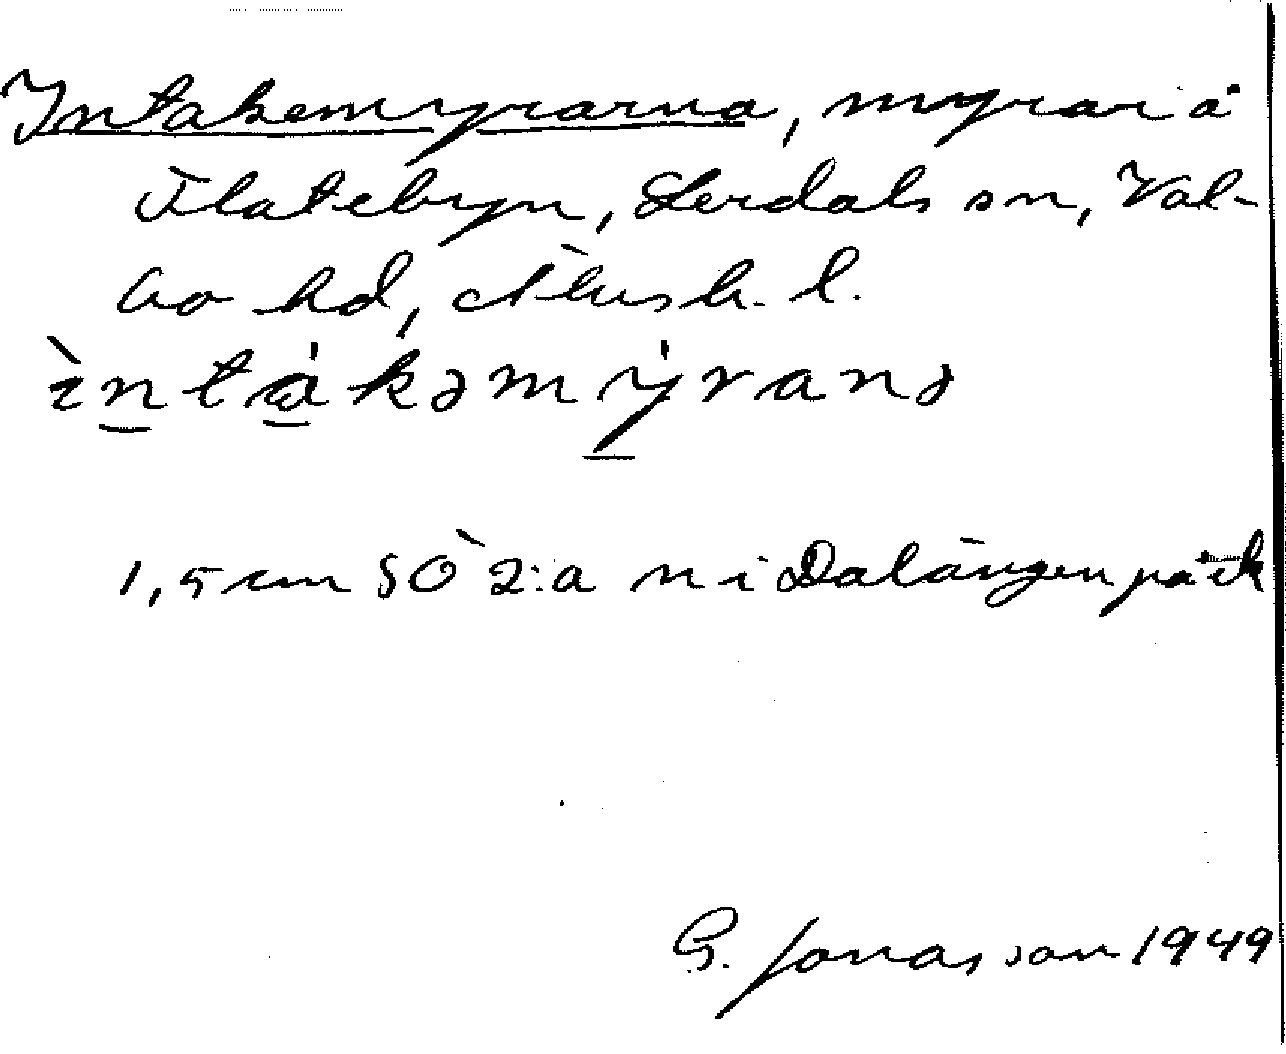 Intakemyrarna, myrar å
Flatebyn, Lerdals sn, Val-
bo hd, Älvsb. l.
ìntàkəmỳranə
1,5 cm SÖ 2:a n i Dalängen på ek
G. Jonasson 1949